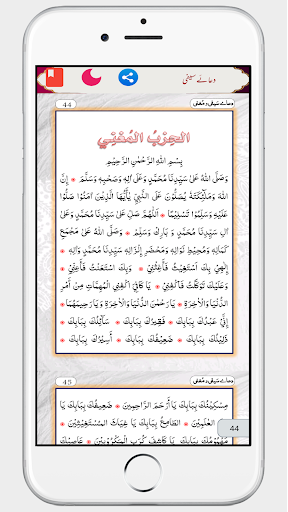 دعائے سیفی
44
دعاے سیفی ومغنی
الحِزْبُ المُغْنِي
بِسْمِ اللهِ الرَّحْمٰنِ الرَّحِيْمِ
وَصَلَّى اللهُ عَلٰى سَيِّدِنَا مُحَمَّدٍ وَّاٰلِهٖ وَصَحْبِهٖ وَسَلَّمَ * إِنَّ اللهَ
وَمَلٰٓئِكَتَهٗ يُصَلُّوْنَ عَلَى النَّبِيِّ يٰٓأَيُّهَا الَّذِيْنَ اٰمَنُوْا صَلُّوْا
عَلَيْهِ وَسَلِّمُوْا تَسْلِيْمًا * اَللّٰهُمَّ صَلِّ عَلٰى سَيِّدِنَا مُحَمَّدٍ وَعَلٰى
اٰلِ سَيِّدِنَا مُحَمَّدٍ وَ بَارِكْ وَسَلِّمْ * وَصَلَّى اللهُ عَلٰى مَجْمَعِ
كَمَالِهٖ وَمُحِيْطِ نَوَالِهٖ وَمَحْضَرِ إِنْزَالِهٖ سَيِّدِنَا مُحَمَّدٍ وَاٰلِهٖ *
إِلٰهِيْ بِكَ أَسْتَغِيْثُ فَأَغِثْنِيْ * وَبِكَ اسْتَعَنْتُ فَأَعِنِّيْ *
وَعَلَيْكَ تَوَكَّلْتُ فَاكْفِنِيْ * يَا كَافِيْ اكْفِنِي الْمُهِمَّاتِ مِنْ أَمْرِ
الدُّنْيَا وَالْاٰخِرَةِ * يَارَحْمٰنَ الدُّنْيَا وَالْاٰخِرَةِ وَ يَارَحِيْمَهُمَا *
إِنِّيْ عَبْدُكَ بِبَابِكَ * فَقِيْرُكَ بِبَابِكَ * سَآئِلُكَ بِبَابِكَ *
ذَلِيْلُكَ بِبَابِكَ * ضَعِيْفُكَ بِبَابِكَ * أَسِيْرُكَ بِبَابِكَ *
45
دعاے سیفی ومغنی
مِسْكِيْنُكَ بِبَابِكَ يَا أَرْحَمَ الرَّاحِمِيْنَ * ضَعِيْفُكَ بِبَابِكَ يَا
الْعٰلَمِيْنَ * الطَّامِعُ بِبَابِكَ يَا غِيَاثَ الْمُسْتَغِيْثِيْنَ *
44
مَهْمُوْمُكَ بِبَابِكَ يَا كَاشِفَ كَرْبِ الْمَكْرُوْبِيْنَ * عَاصِيْكَ